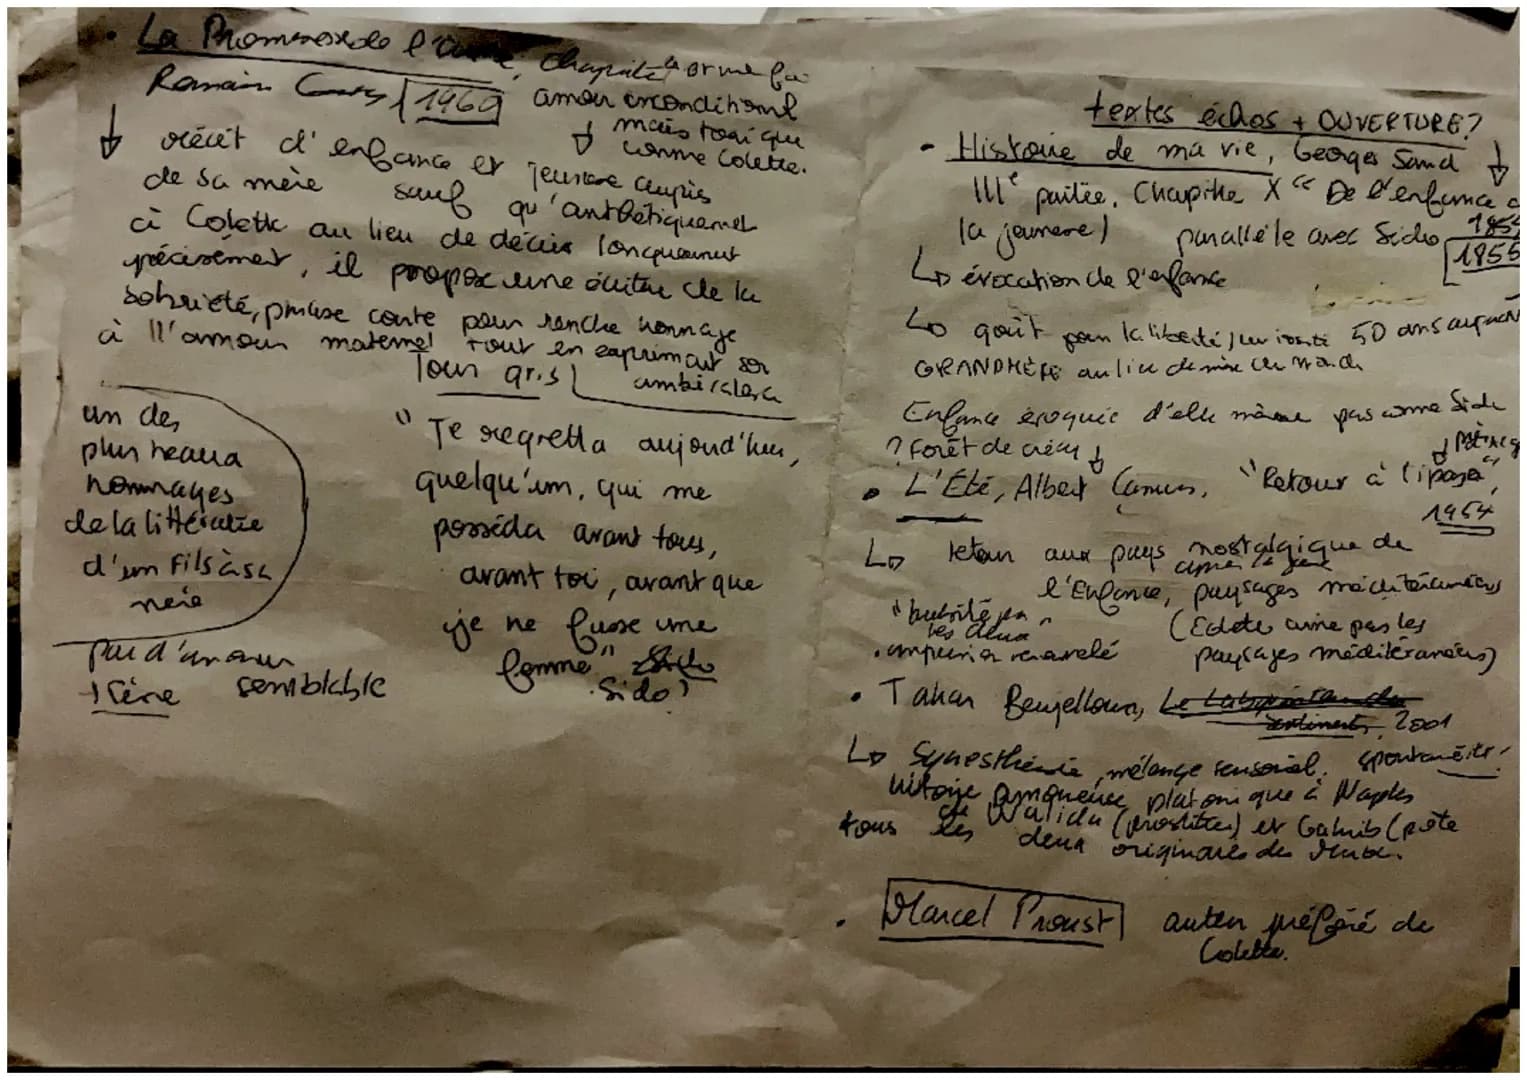 • La Promesse de l'aube, chapitre
Romain Gary 1960 amour inconditionnel
mais toxique
comme Colette.
récit d'enfance et jeunesse auprès
de sa mère sauf qu'antithétiquement
à Colette au lieu de décrire longuement
précisément, il propose une écriture de la
sobriété, phrase courte pour rendre hommage
à ll'amour maternel tout en exprimant son
ambivalence
Tour gris
un des
plus beaux
hommages
de la littérature
d'un fils à sa
mère
pas d'amour
semblable
" Te regretta aujourd'hui,
quelqu'un, qui me
posséda avant tous,
avant toi, avant que
je ne fusse une
femme"
Sido
textes échos + OUVERTURE?
- Histoire de ma vie, George Sand
IIIe partie, Chapitre X " De l'enfance à
la jeunesse) parallèle avec Sido 1854
1855
↳ évocation de l'enfance
↳ goût pour la liberté, curiosité 50 ans auparavant
GRANDMÈRE au lieu de mère
Enfance évoquée d'elle même pas comme Sido
? Forêt de crécy
• L'Été, Albert Camus, "Retour à Tipasa",
1954
↳ retour aux pays nostalgique de
l'Enfance, paysages méditerranéens
les deux
(Colette aime pas les
paysages méditéranéens)
• Tahar Benjelloun, Le Labyrinthe des
sentiments, 2001
↳ Synesthésie, mélange sensoriel, spontanéité!
histoire amoureuse platonique à Naples
de Walida (prostituée) et Gahrib (poète
tous les deux originaires du Maroc.
• Marcel Proust auteur préféré de
Colette.